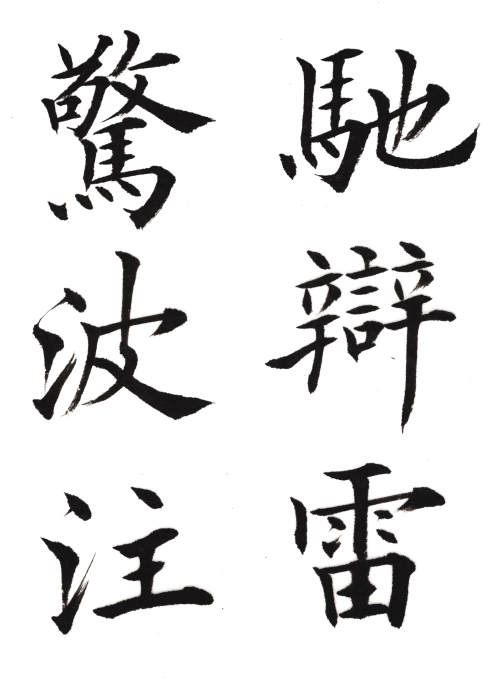 馳辯雷
驚波注